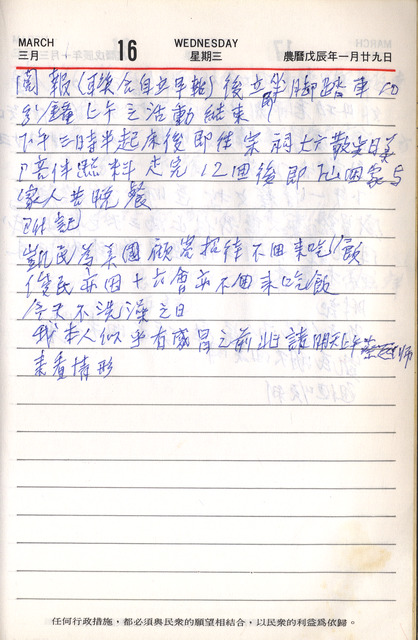 MARCH
三月
16
WEDNESDAY
星期三
農曆戊辰年一月廿九日
閱報(聯合自立早報)後立即 腳踏車10
分鐘上午之活動結束
下午三時半起床後即往宗祠七六散步日美
陪伴 走完12回後即 回家与
家人共晚餐
附記
凱民為美國顧客招待不回來吃飯
俊民亦因十六會亦不回來吃飯
今天不洗澡之日
我本人似乎有感冒之前 請明天上午 師
來看情形
任何行政措施，都必須與民衆的願望相結合，以民衆的利益爲依歸。